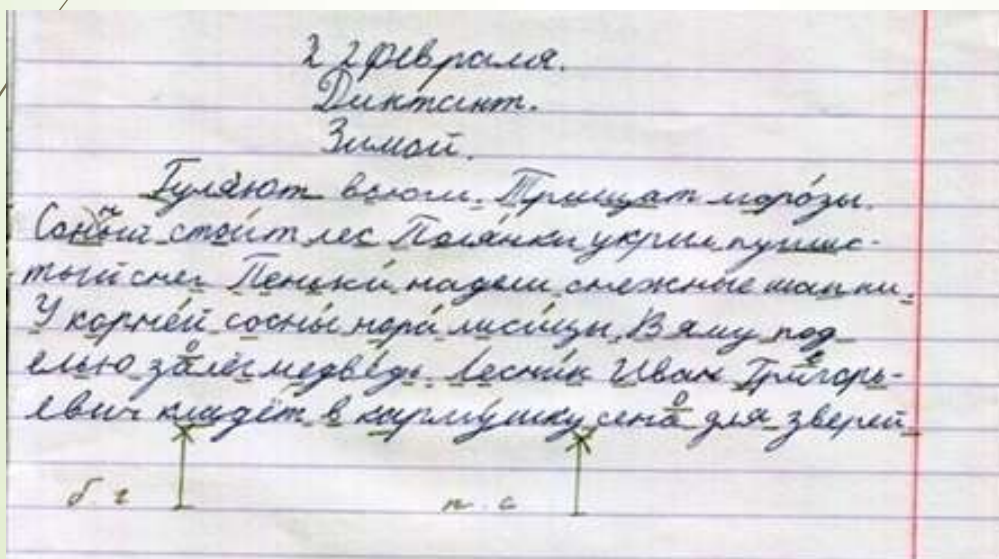 22 февраля.
Диктант.
Зимой.
Гуляют вьюги. Трищат морозы.
Сонный стоит лес Полянки укрил пушис-
тый снег Пеньки надели снежные шапки.
У корней сосны нора лисицы. В яму под
елью залёг медведь. Лесник Иван Григорь-
евич кладёт в кармушку сена для зверей
б. г п. с